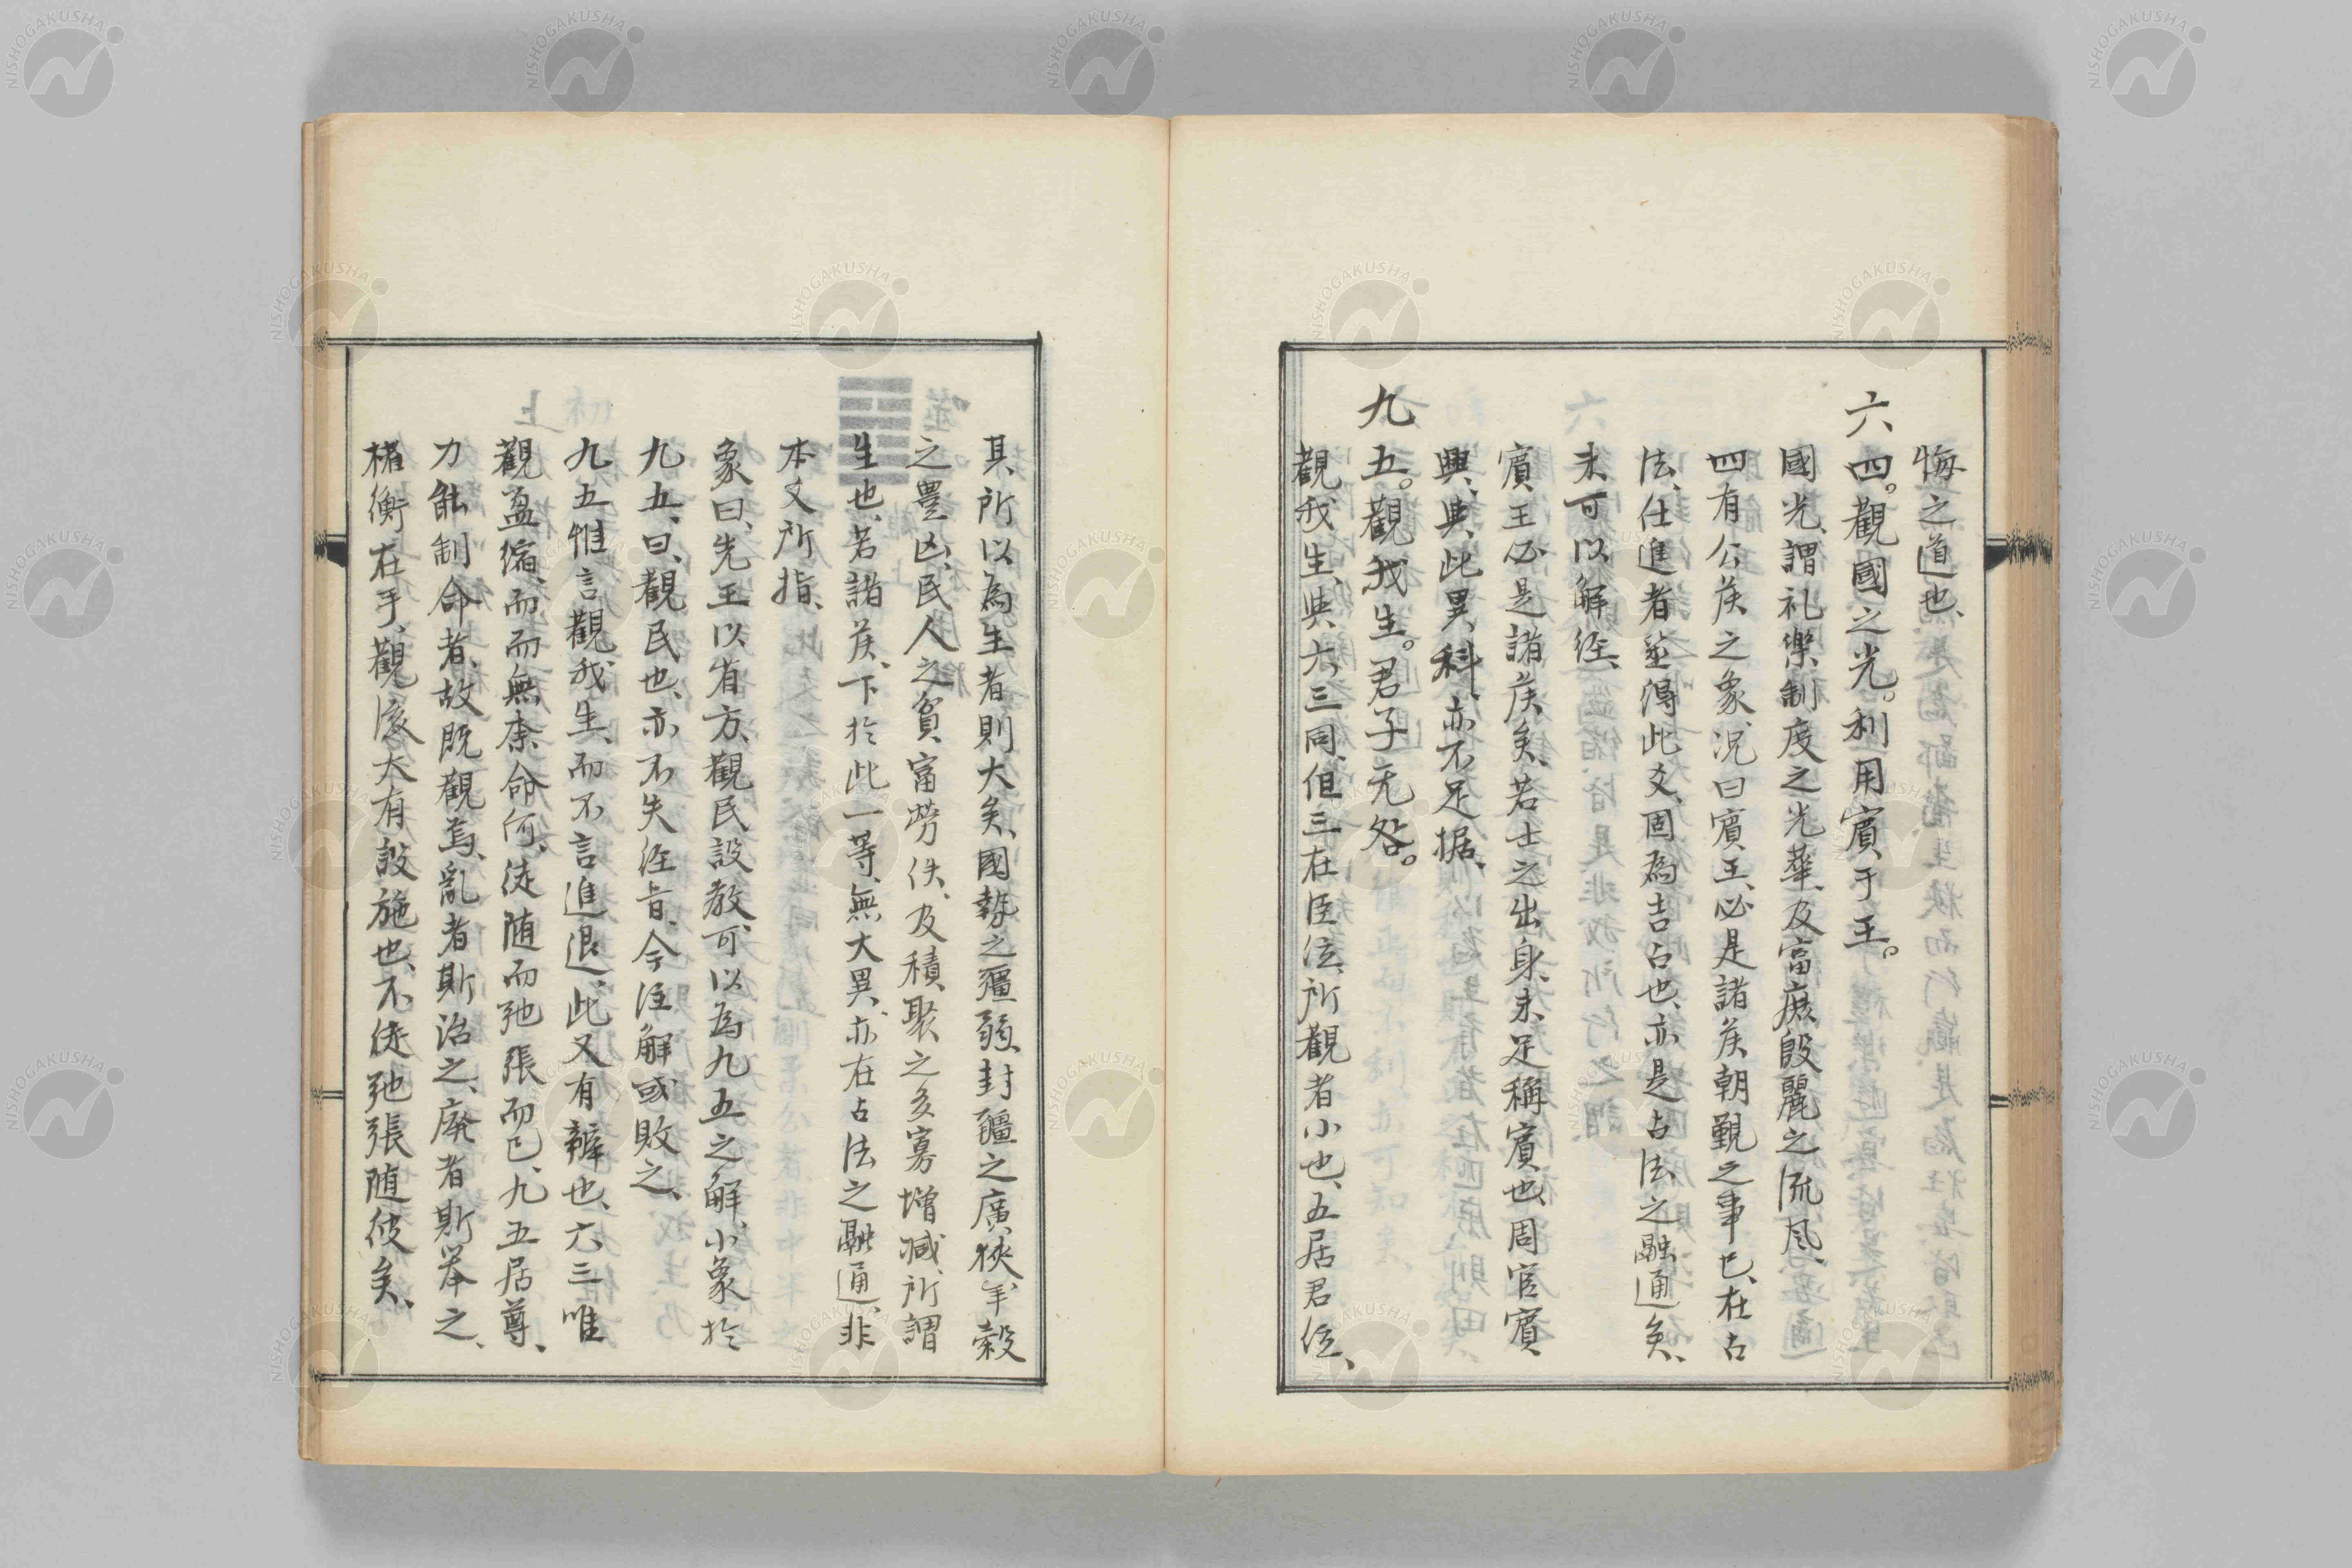 悔之道也、
六四。觀國之光。利用賓于王。
國光、謂礼樂制度之光華、及富庶殷麗之流風、
四有公矦之象、况曰賓王、必是諸矦朝覲之事已、在占
法、仕進者筮得此爻、固為吉占也、亦是占法之融通矣、
未可以解経、
賓王必是諸矦矣、若士之出身、未足稱賓也、周官賓
興、與此異科、亦不足据、
九五。觀我生。君子无咎。
觀我生、與六三同、但三在臣位、所觀者小也、五居君位、
其所以為生者則大矣、國勢之彊弱、封疆之廣狹、年穀
之豊凶、民人之貧富勞佚、及積聚之多寡增减、所謂
生也、若諸矦、下於此一等、無大異、亦在占法之融通、非
本文所指、
象曰、先王以省方、觀民設教、可以為九五之解、小象於
九五、曰、觀民也、亦不失経旨、今注解或敗之、
九五惟言觀我生、而不言進退、此又有辨也、六三唯
觀盈縮、而而無柰命何、徒随而弛張而已、九五居尊、
力能制命者、故既觀焉、亂者斯治之、廃者斯举之、
權衡在手、觀後大有設施也、不徒弛張随彼矣、